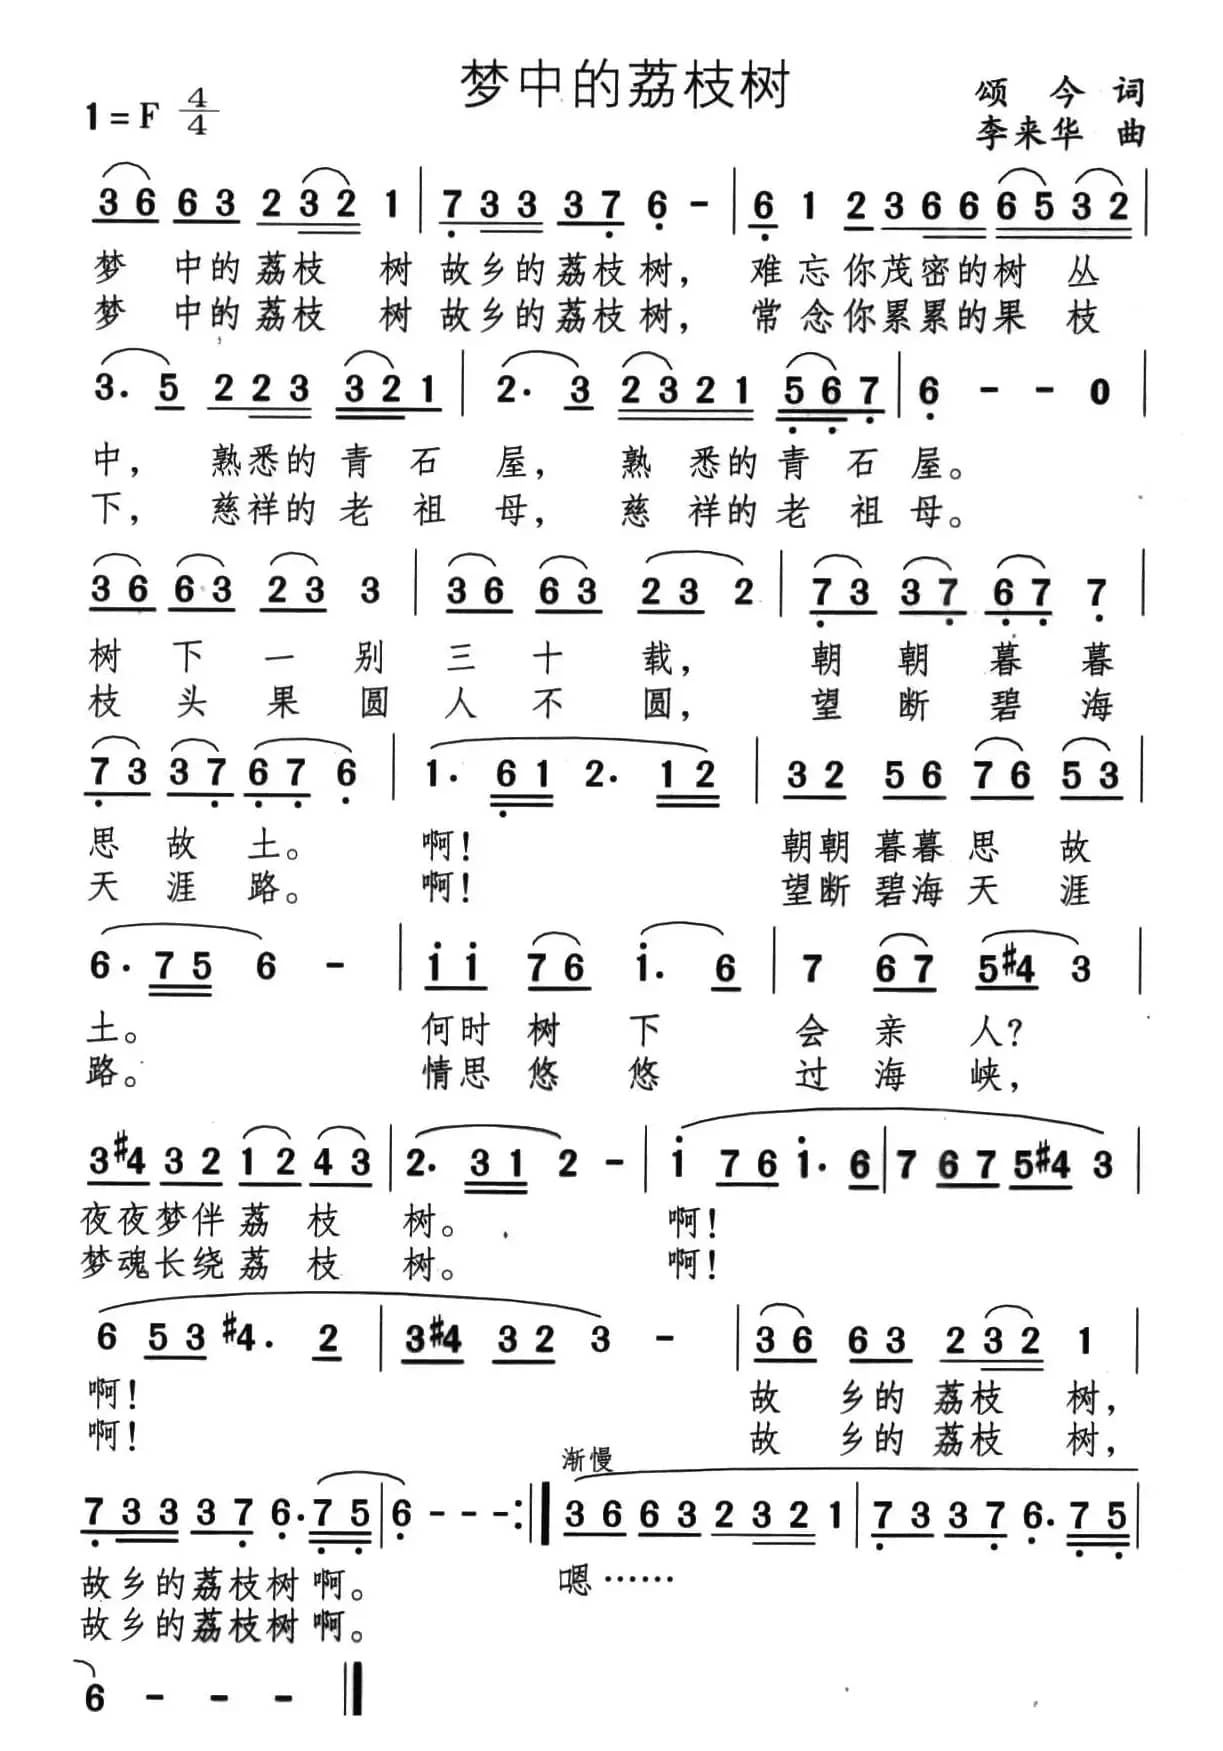 梦中的荔枝树
1=F 4/4
颂今 词
李来华 曲
3 6 6 3 2 3 2 1 | 7 3 3 3 7 6 - | 6 1 2 3 6 6 6 5 3 2 |
梦 中的荔枝 树 故乡的荔枝树, 难忘你茂密的树 丛
梦 中的荔枝 树 故乡的荔枝树, 常念你累累的果 枝
3. 5 2 2 3 3 2 1 | 2. 3 2 3 2 1 5 6 7 | 6 - - 0 |
中, 熟悉的青 石 屋, 熟 悉的青 石 屋。
下, 慈祥的老 祖 母, 慈 祥的老 祖 母。
3 6 6 3 2 3 3 | 3 6 6 3 2 3 2 | 7 3 3 7 6 7 7 |
树 下 一 别 三 十 载, 朝 朝 暮 暮
枝 头 果 圆 人 不 圆, 望 断 碧 海
7 3 3 7 6 7 6 | 1. 6 1 2. 1 2 | 3 2 5 6 7 6 5 3 |
思 故 土。 啊! 朝朝 暮暮 思 故
天 涯 路。 啊! 望断 碧海 天 涯
6. 7 5 6 - | i i 7 6 i. 6 | 7 6 7 5 #4 3 |
土。 何时 树 下 会 亲 人?
路。 情思 悠 悠 过 海 峡,
3 #4 3 2 1 2 4 3 | 2. 3 1 2 - | i 7 6 i. 6 | 7 6 7 5 #4 3 |
夜夜梦伴 荔 枝 树。 啊!
梦魂长绕 荔 枝 树。 啊!
6 5 3 #4. 2 | 3 #4 3 2 3 - | 3 6 6 3 2 3 2 1 |
啊! 故 乡的 荔枝 树,
啊! 故 乡的 荔枝 树,
渐慢
7 3 3 3 7 6. 7 5 | 6 - - - :| 3 6 6 3 2 3 2 1 | 7 3 3 3 7 6. 7 5 |
故乡的荔枝树 啊。 嗯……
故乡的荔枝树 啊。
6 - - - ‖